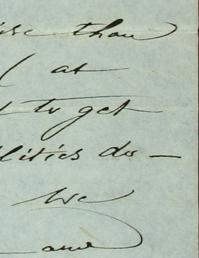 than
( at
to get
lities do —
We
and